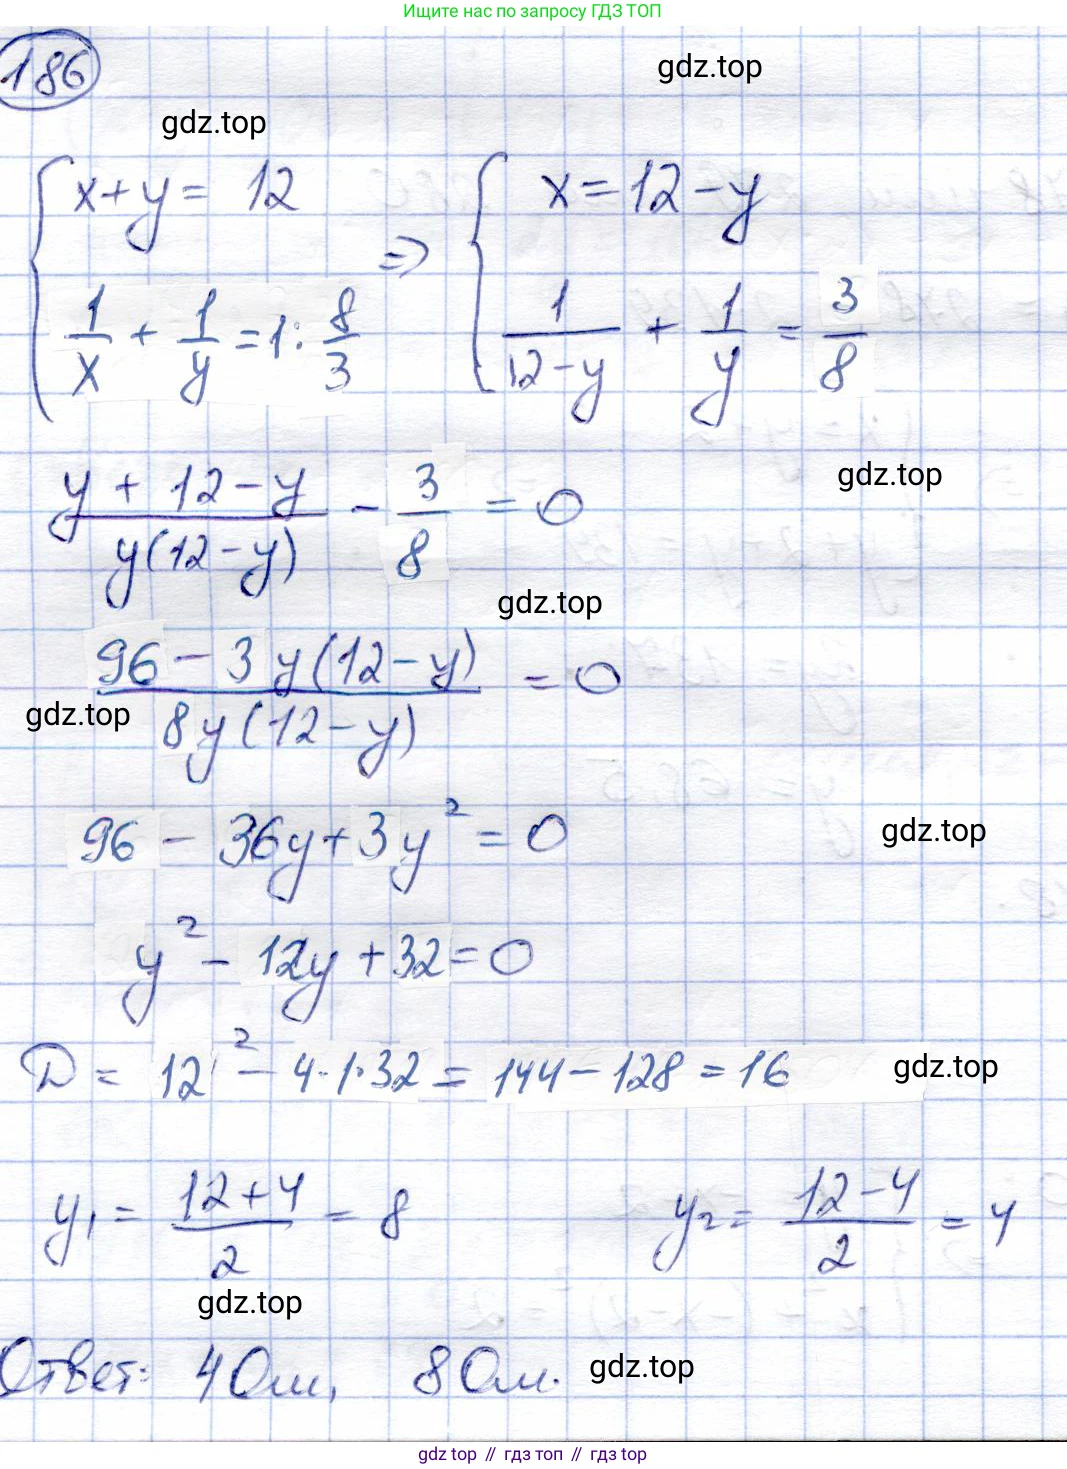 Ищите нас по запросу ГДЗ ТОП
186
gdz.top
gdz.top
{ x+y= 12 => { x=12-y
1/x + 1/y = 1: 8/3 1/(12-y) + 1/y = 3/8
gdz.top
(y + 12 - y)/(y(12-y)) - 3/8 = 0
gdz.top
(96 - 3y(12-y))/(8y(12-y)) = 0
gdz.top
96 - 36y + 3y² = 0
gdz.top
y² - 12y + 32 = 0
D = 12² - 4·1·32 = 144 - 128 = 16
gdz.top
y₁ = (12+4)/2 = 8 y₂ = (12-4)/2 = 4
gdz.top
Ответ: 4 Ом, 8 Ом.
gdz.top
gdz top // гдз топ // gdz top